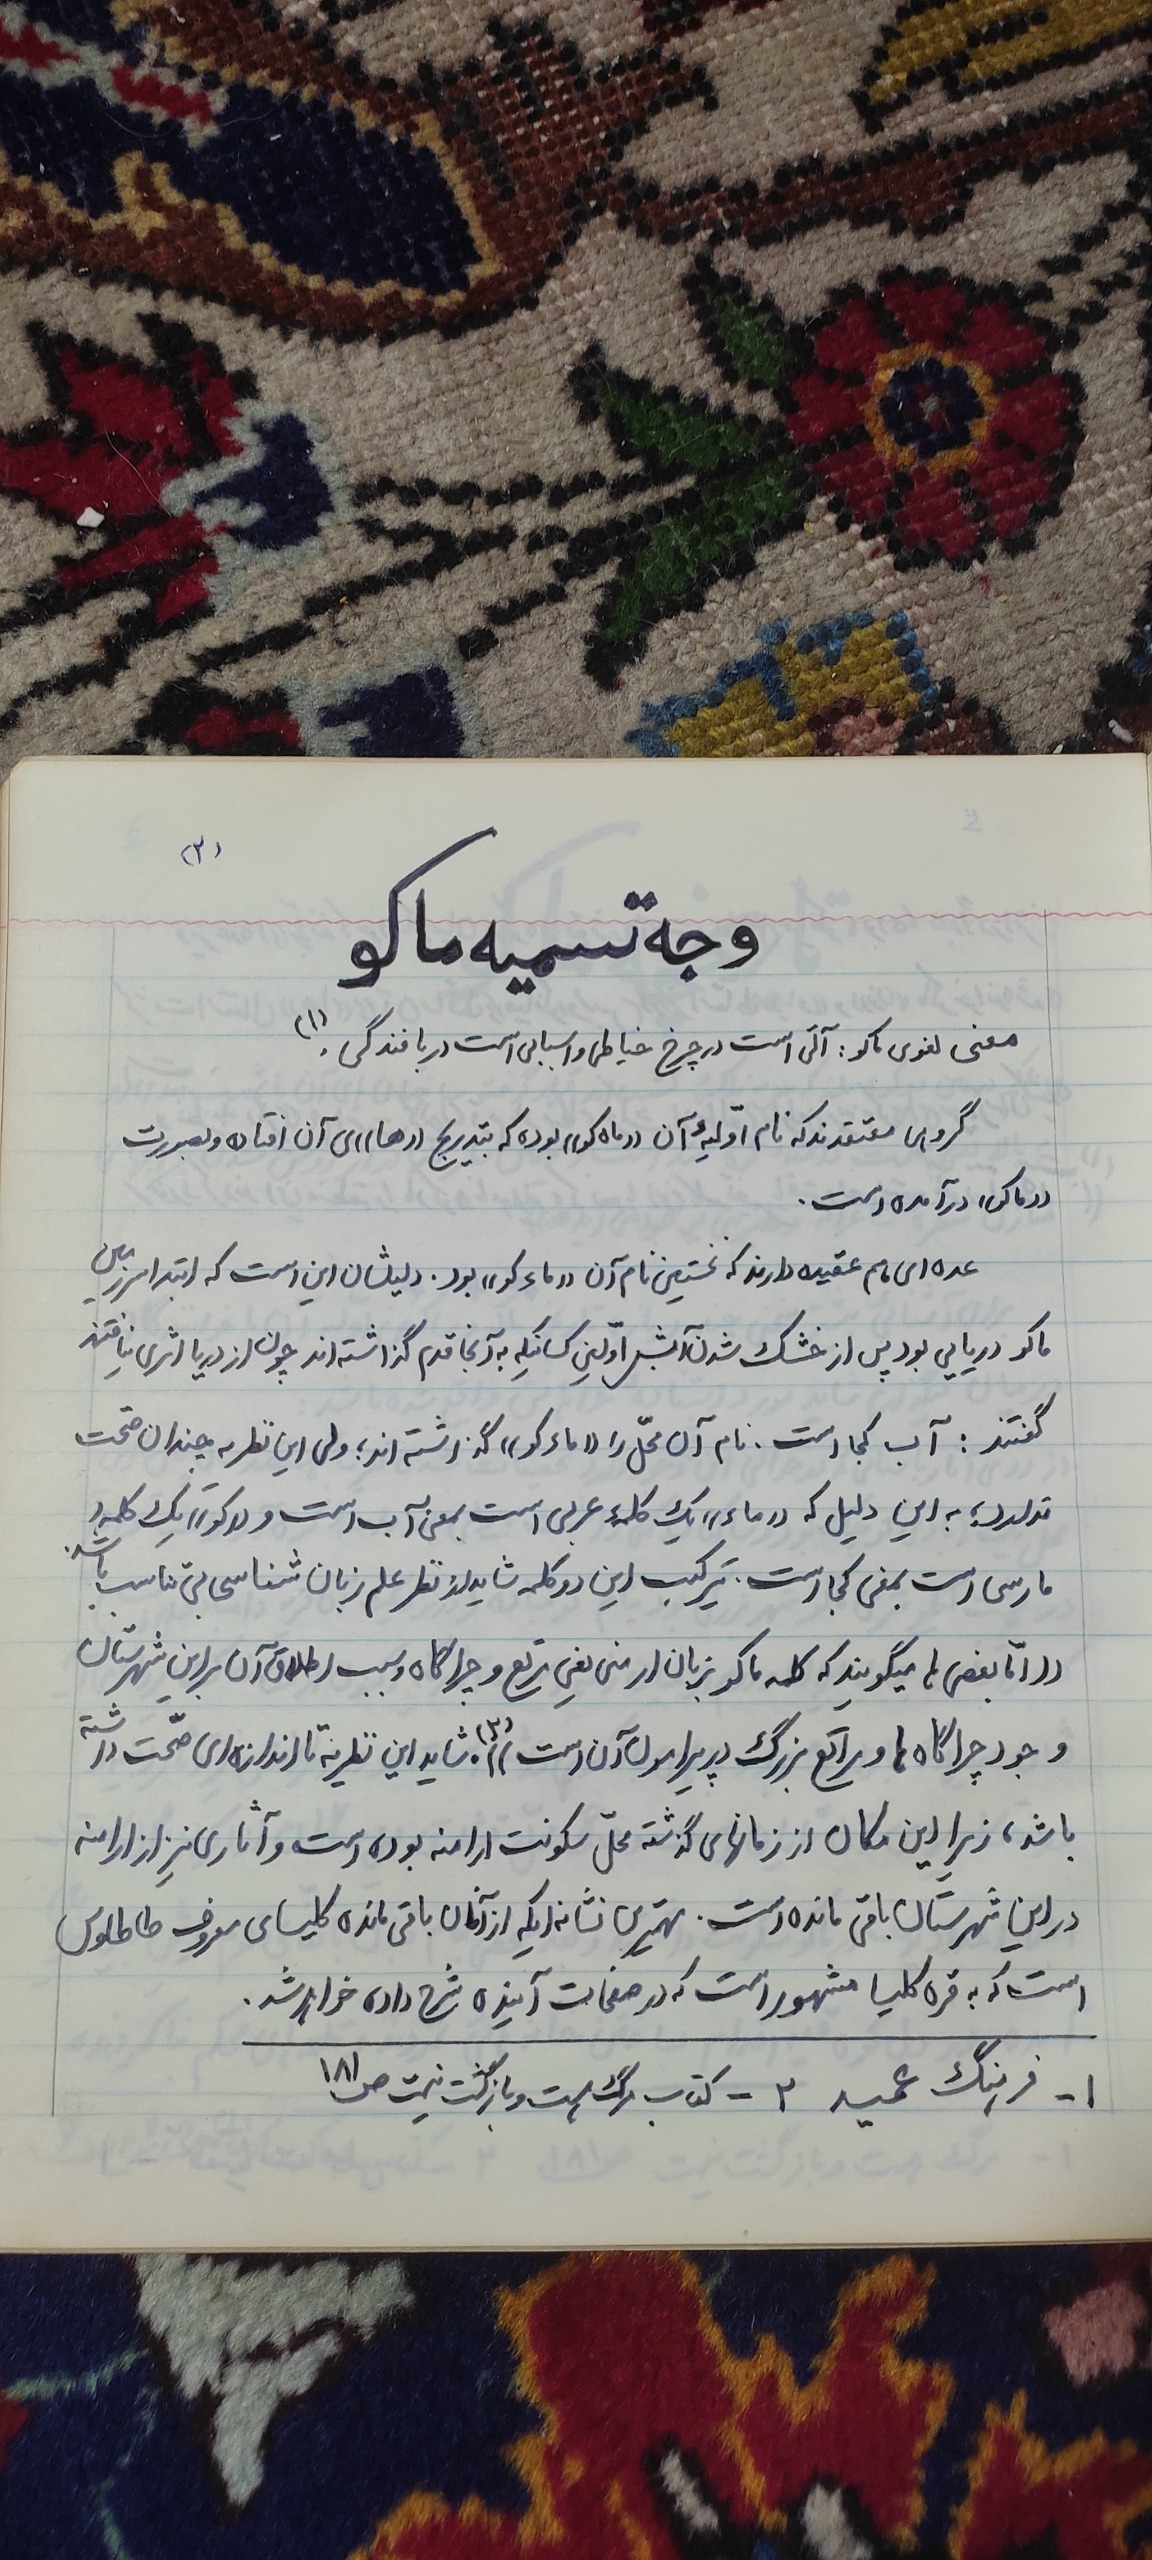 (۲)
وجه تسمیه ماکو
معنی لغوی ماکو: آلتی است در چرخ خیاطی و اسبابی است در بافندگی. (۱)
گروهی معتقدند که نام اوّلیهٔ آن «ماه کو» بوده که بتدریج «ها»ی آن افتاده و بصورت
«ماکو» درآمده است.
عده ای هم عقیده دارند که نخستین نام آن «ماء کو» بود. دلیلشان این است که ابتدا سرزمین
ماکو دریایی بود پس از خشک شدن آبش اوّلین کسانیکه به آنجا قدم گذاشته اند چون از دریا اثری نیافتند
گفتند: آب کجا است. نام آن محلّ را «ماء کو» گذاشته اند؛ ولی این نظریه چندان صحّت
ندارد؛ به این دلیل که «ماء» یک کلمهٔ عربی است بمعنی آب است و «کو» یک کلمهٔ
فارسی است بمعنی کجا است. ترکیب این دو کلمه شاید از نظر علم زبان شناسی بی تناسب باشد.
«امّا بعضی ها میگویند که کلمه ماکو بزبان ارمنی یعنی مرتع و چراگاه و سبب اطلاق آن بر این شهرستان
وجود چراگاه ها و مراتع بزرگ در پیرامون آن است». (۲) شاید این نظریه تا اندازه ای صحّت داشته
باشد، زیرا این مکان از زمانهای گذشته محلّ سکونت ارامنه بوده است و آثاری نیز از ارامنه
در این شهرستان باقی مانده است. بهترین نشانه ایکه از آنان باقی مانده کلیسای معروف طاطاوس
است که به قره کلیسا مشهور است که در صفحات آینده شرح داده خواهد شد.
۱- فرهنگ عمید ۲- کتاب مرگ هست و بازگشت نیست ص ۱۸۱